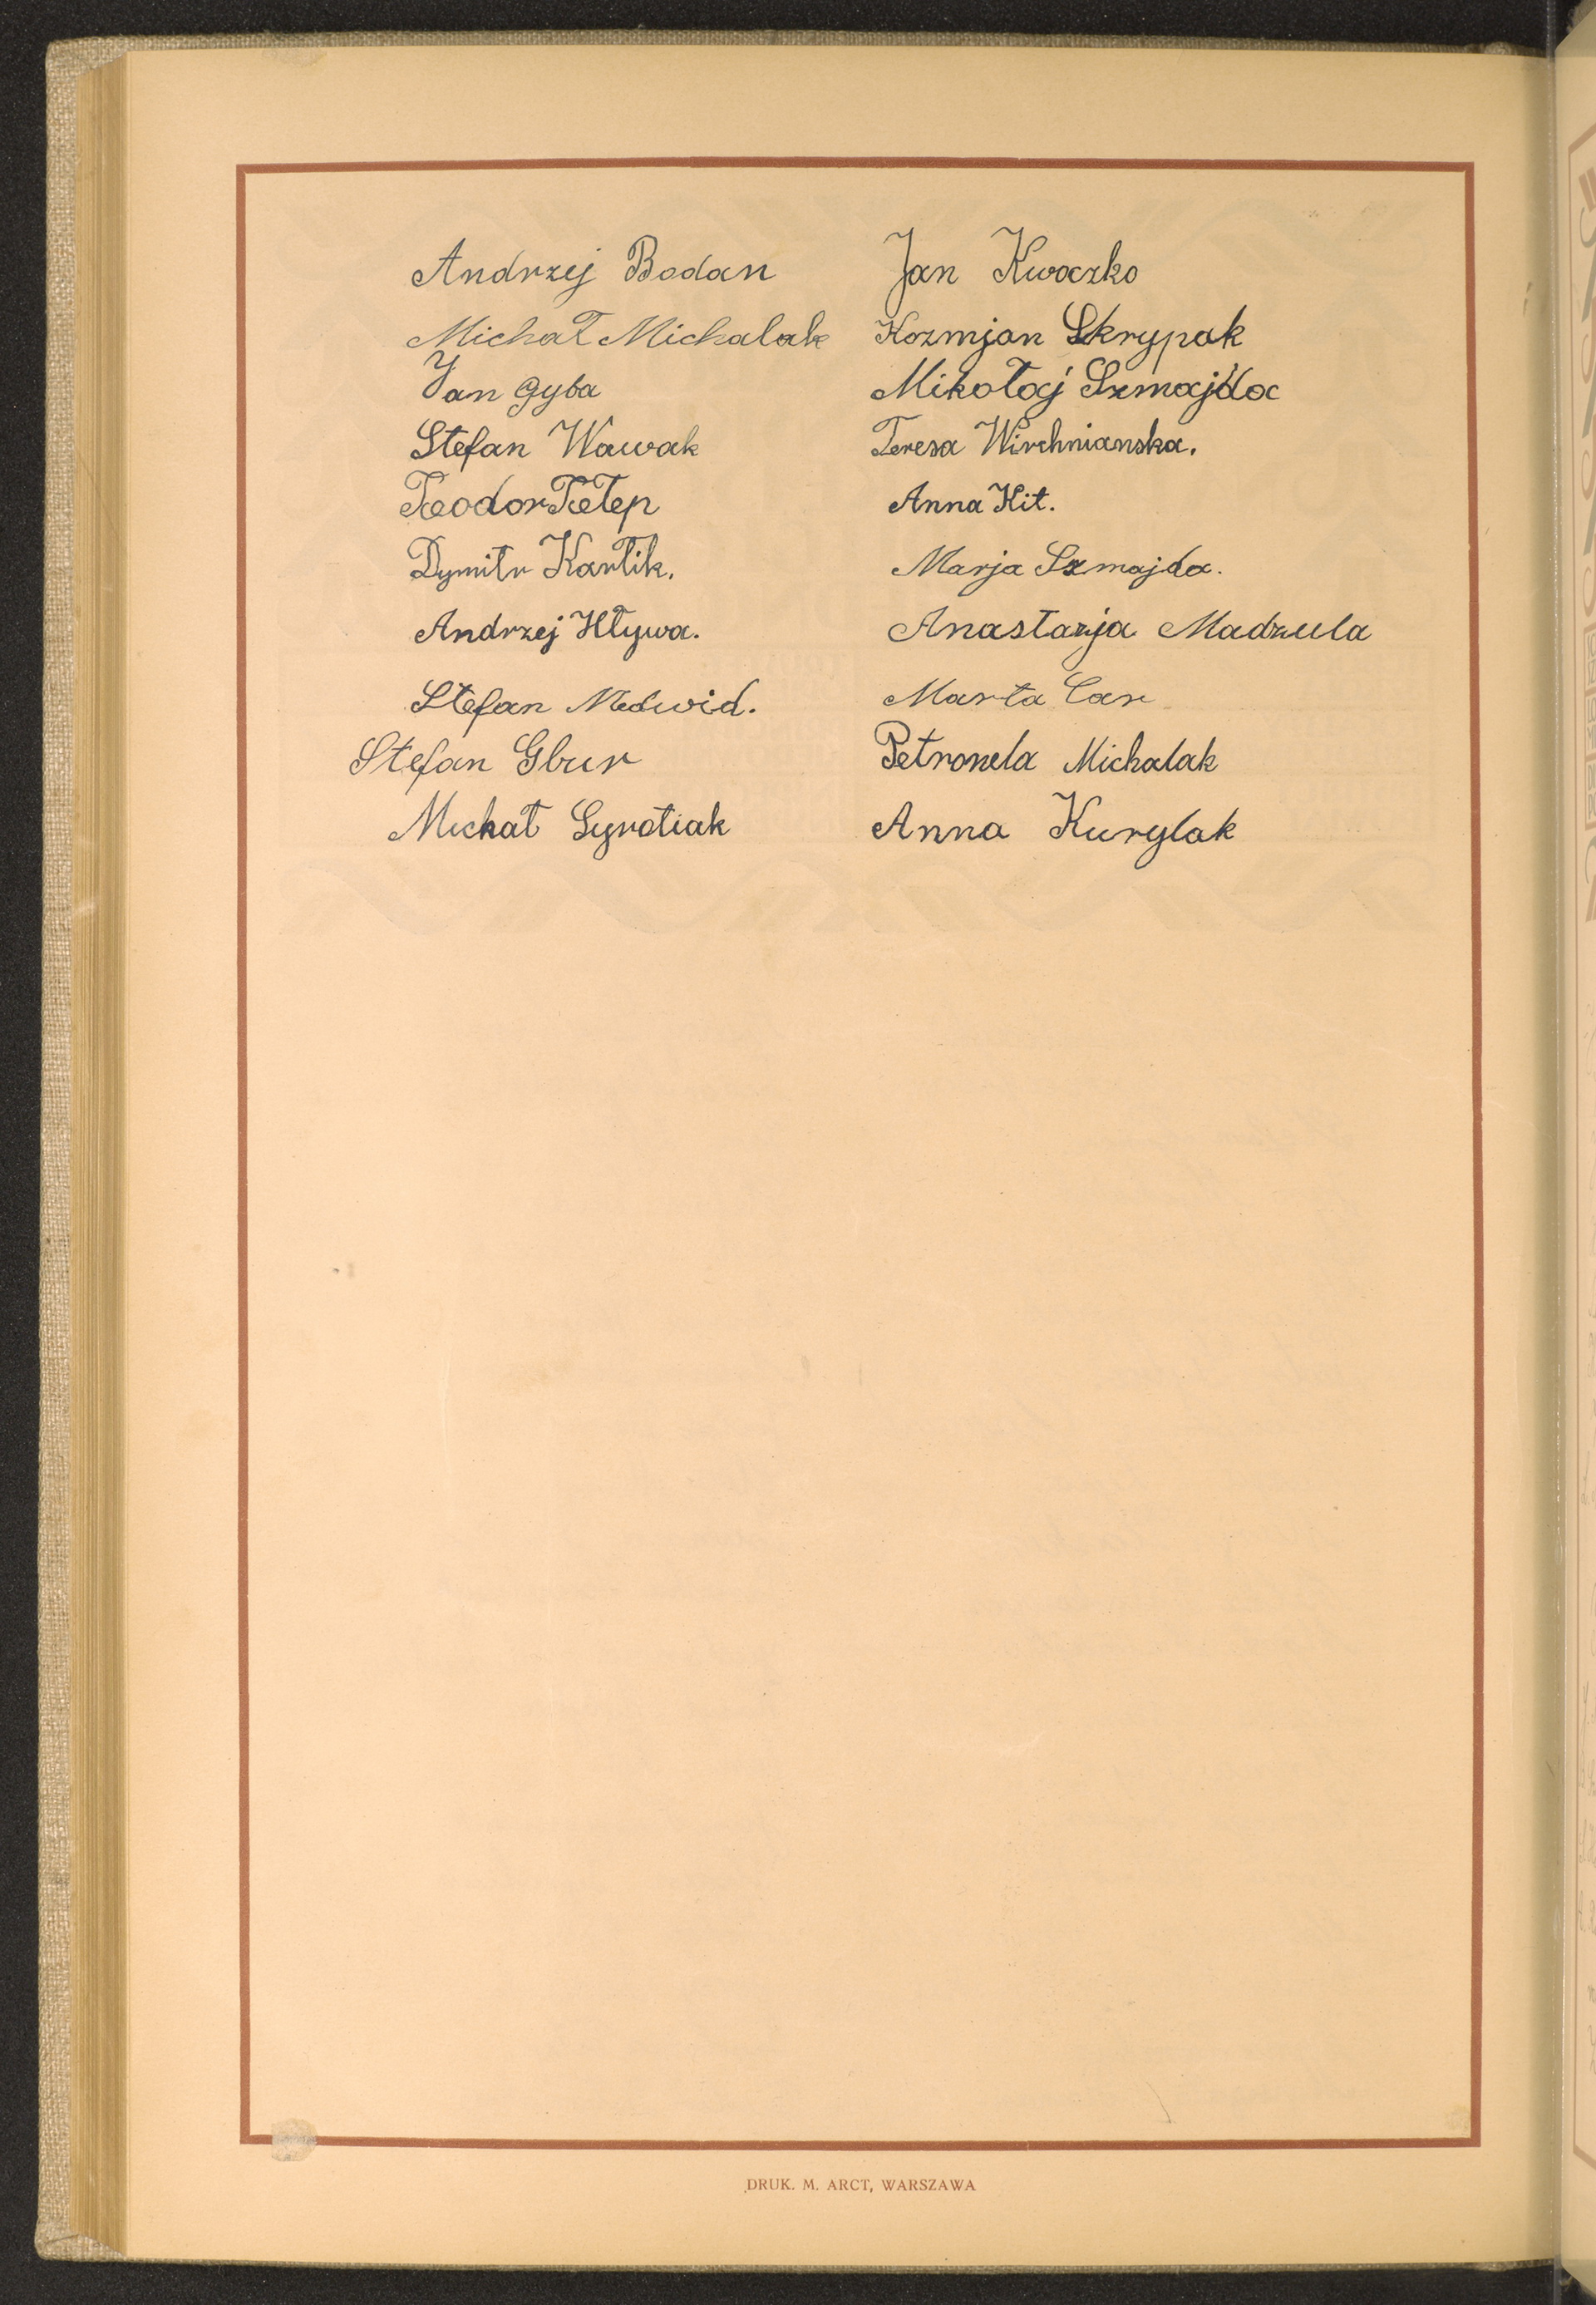 Andrzej Bodan
Michał Michalak
Jan Gyba
Stefan Wawak
Teodor Tełep
Dymitr Kartik.
Andrzej Hływa.
Stefan Medwid.
Stefan Gbur
Michał Syrotiak
Jan Kwoczko
Kozmjan Skrypak
Mikołaj Szmajda
Teresa Wirchnianska.
Anna Kit.
Marja Szmajda.
Anastazja Madzula
Marta Car
Petronela Michalak
Anna Kurylak
DRUK. M. ARCT, WARSZAWA